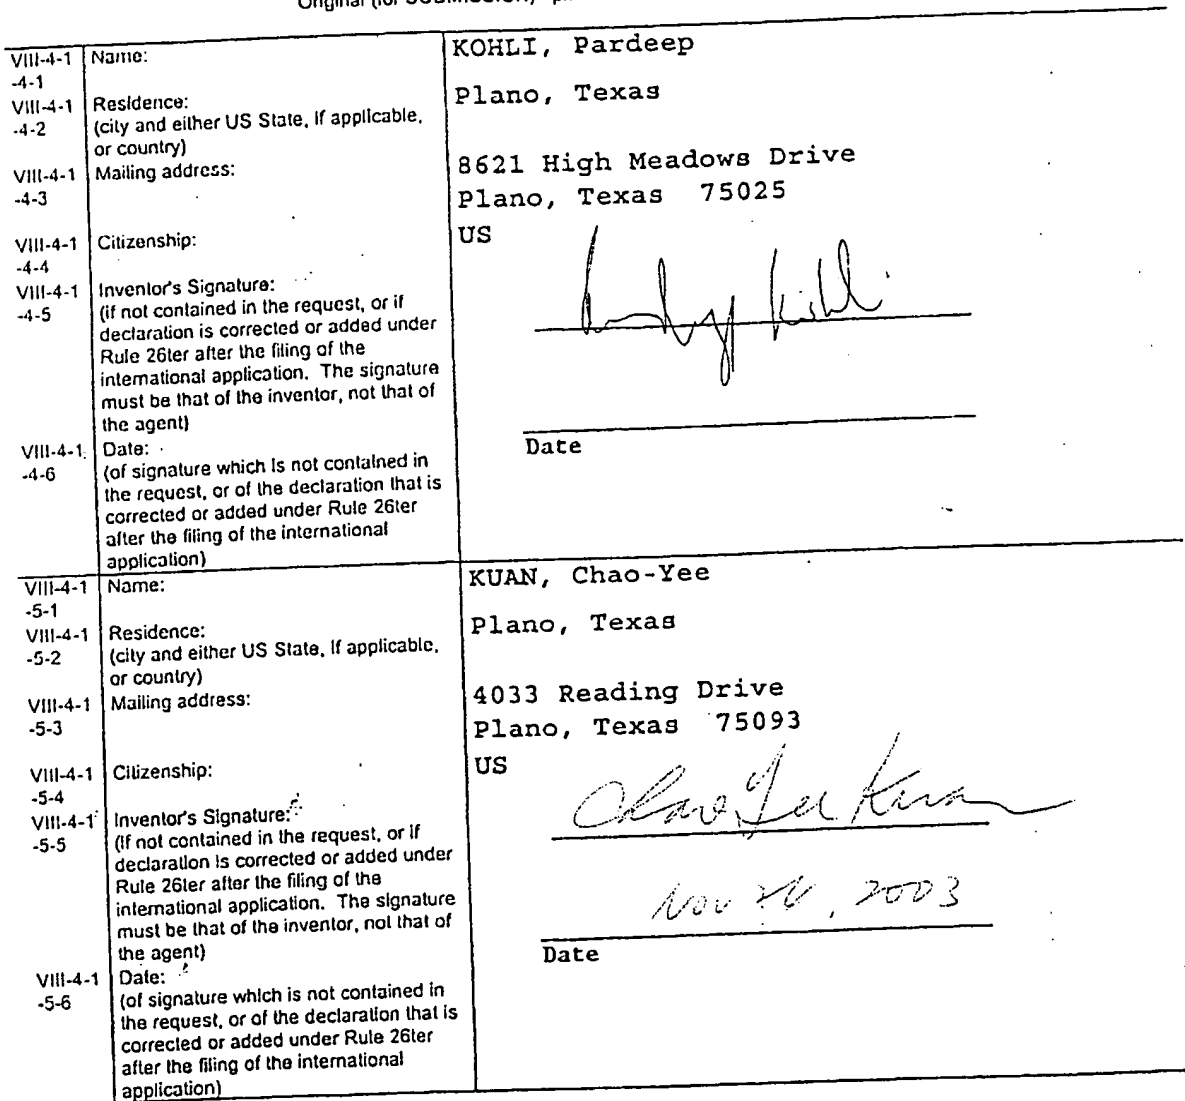 Original (for SUBMISSION)
VIII-4-1 Name: KOHLI, Pardeep
-4-1
VIII-4-1 Residence: Plano, Texas
-4-2 (city and either US State, if applicable,
or country)
VIII-4-1 Mailing address: 8621 High Meadows Drive
-4-3 Plano, Texas 75025
VIII-4-1 Citizenship: US
-4-4
VIII-4-1 Inventor's Signature:
-4-5 (if not contained in the request, or if
declaration is corrected or added under
Rule 26ter after the filing of the
international application. The signature
must be that of the inventor, not that of
the agent)
VIII-4-1 Date: Date
-4-6 (of signature which is not contained in
the request, or of the declaration that is
corrected or added under Rule 26ter
after the filing of the international
application)
VIII-4-1 Name: KUAN, Chao-Yee
-5-1
VIII-4-1 Residence: Plano, Texas
-5-2 (city and either US State, if applicable,
or country)
VIII-4-1 Mailing address: 4033 Reading Drive
-5-3 Plano, Texas 75093
VIII-4-1 Citizenship: US
-5-4
VIII-4-1 Inventor's Signature: Chao Yee Kuan
-5-5 (if not contained in the request, or if
declaration is corrected or added under
Rule 26ter after the filing of the
international application. The signature
must be that of the inventor, not that of
the agent) Nov , 2003
VIII-4-1 Date: Date
-5-6 (of signature which is not contained in
the request, or of the declaration that is
corrected or added under Rule 26ter
after the filing of the international
application)